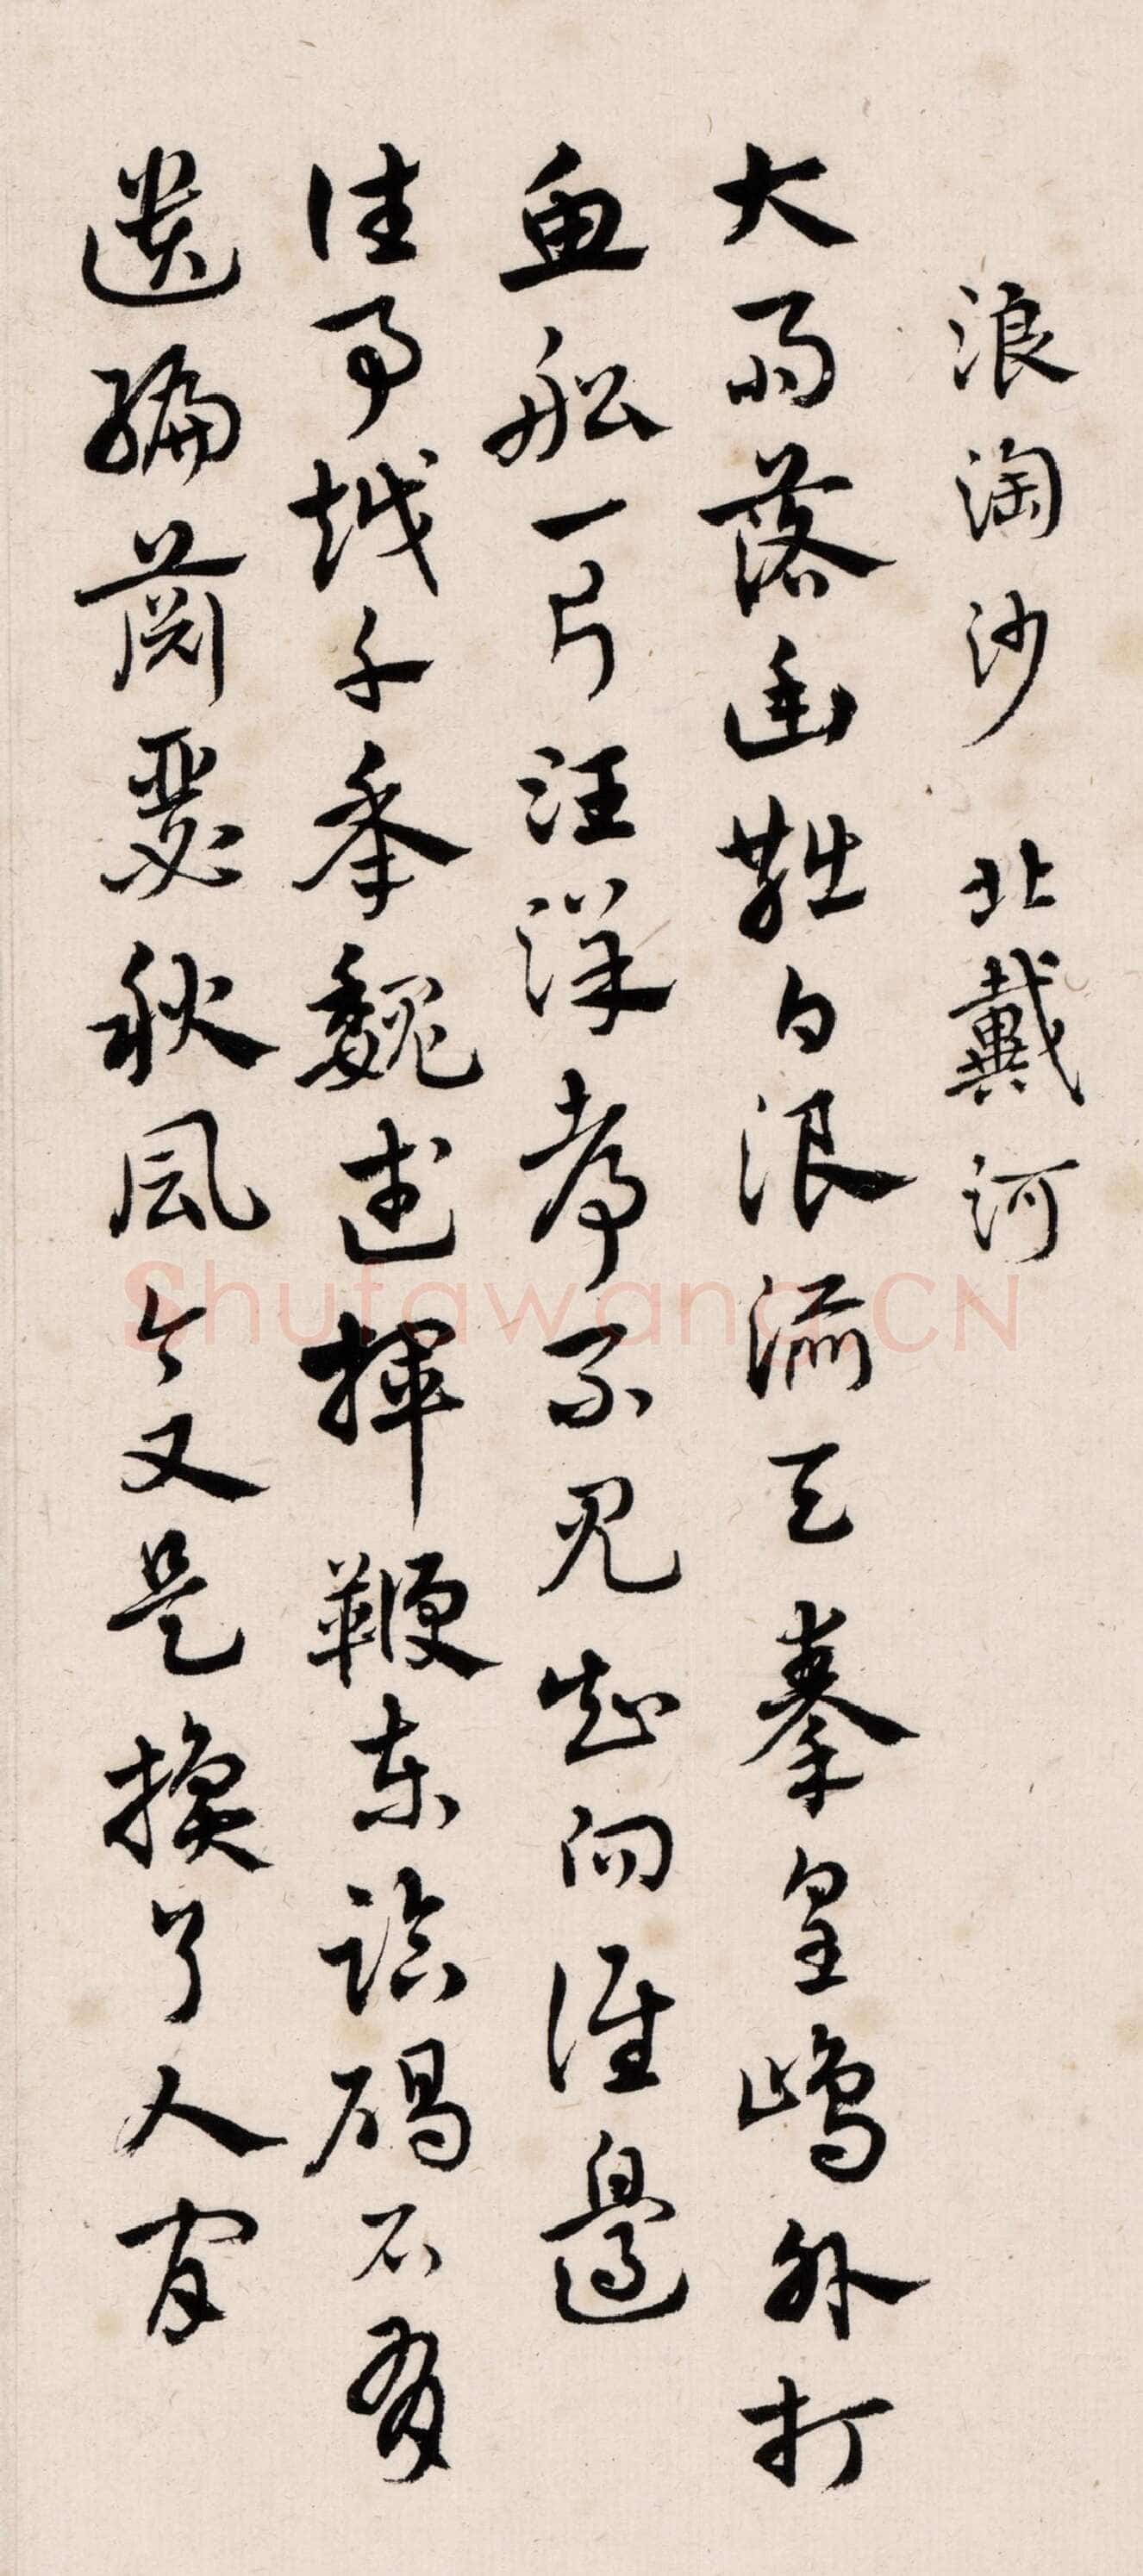 浪淘沙 北戴河
大雨落幽燕白浪滔天秦皇島外打
魚船一片汪洋都不見知向誰邊
往事越千年魏武揮鞭東臨碣石有
遺編蕭瑟秋風今又是換了人間
Shufawang.CN